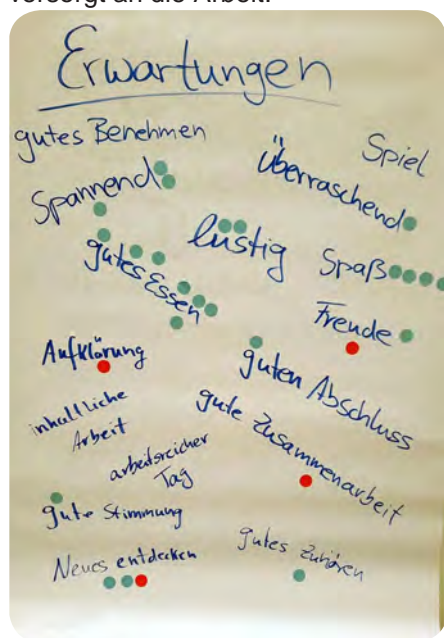 versorgt an die Arbeit.
Erwartungen
gutes Benehmen
Spiel
überraschend
Spannend
lustig
gutes Essen
Spaß
Freude
Aufklärung
guten Abschluss
inhaltliche
Arbeit
gute Zusammenarbeit
arbeitsreicher
Tag
gute Stimmung
Neues entdecken
gutes Zuhören